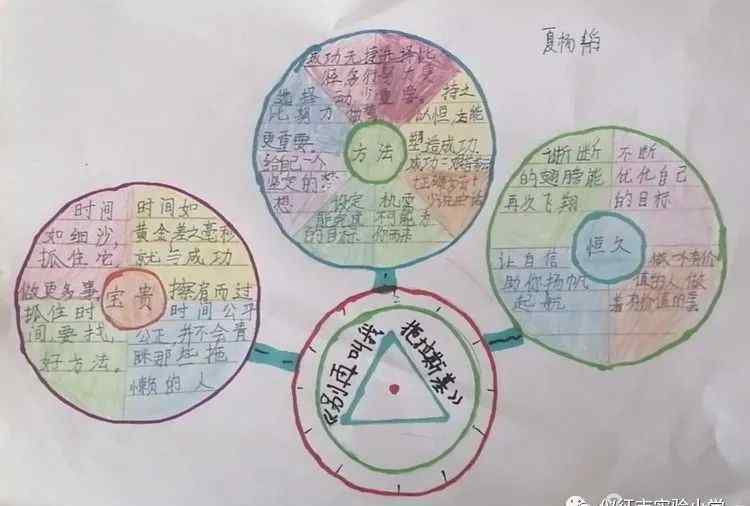 夏杨
成功无捷
选择
比努力
更重要。
给自己一个
坚定的梦
想
设定
能完成
的目标
机变
不可能
持之
以恒
塑造成功
方法
折断
的翅膀能
再次飞翔
不断
优化自己
的目标
让自信
助你扬帆
起航
做一个有价
值的人做
着有价值的事
恒久
时间
如细沙,
抓住它
时间如
黄金差之毫秒
就与成功
擦肩而过
做更多事
抓住时
间,要找
好方法。
时间公平
公正,并不会青
睐那些拖
懒的人
宝贵
《别再叫我
拖拉斯基》
仪征市实验小学